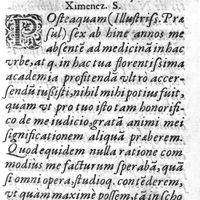 Ximenez. S.
POsteaquam (Illustriss. Præ
sul) sex ab hinc annos me
absentē ad medicinā in hac
vrbe, at q̃. in hac tua florentissima
academia profitendā vltro accer-
sendā iussisti, nihil mihi fuit optatius,
quàm vt pro tuo isto tam honorifi-
co de me iudicio, gratū animi mei
significationem aliquā præberem.
Quod equidem nulla ratione com-
modius me facturum sperabā, quā
si omni opera, studioq. contēderem,
vt quam maxime possem, tā in scho